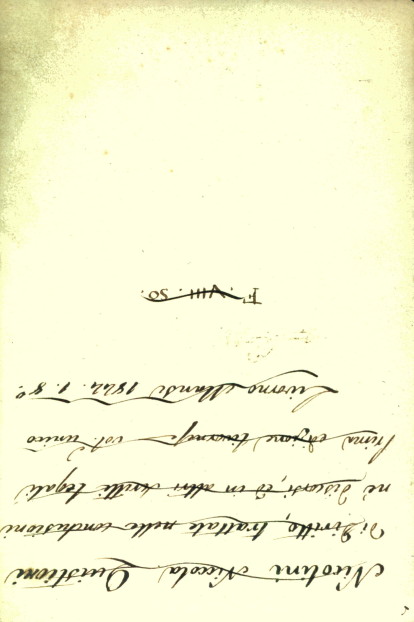 Nicolini Niccola Quistioni
di Diritto, trattate nelle conclusioni
ne' discorsi, ed in altri scritti legali
Prima edizione livornese vol. unico
Livorno Mansi 1844. T. 8º.
F. VIII. 50.